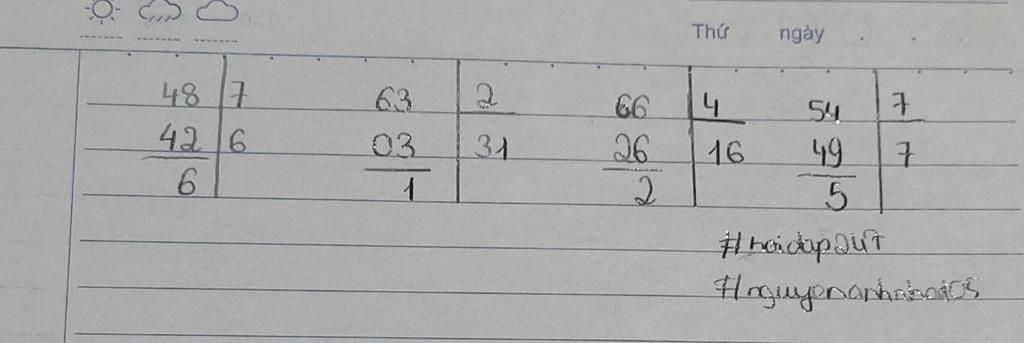 Thứ ngày
48 7 63 2 66 4 54 7
42 6 03 31 26 16 49 7
6 1 2 5
#hoidap247